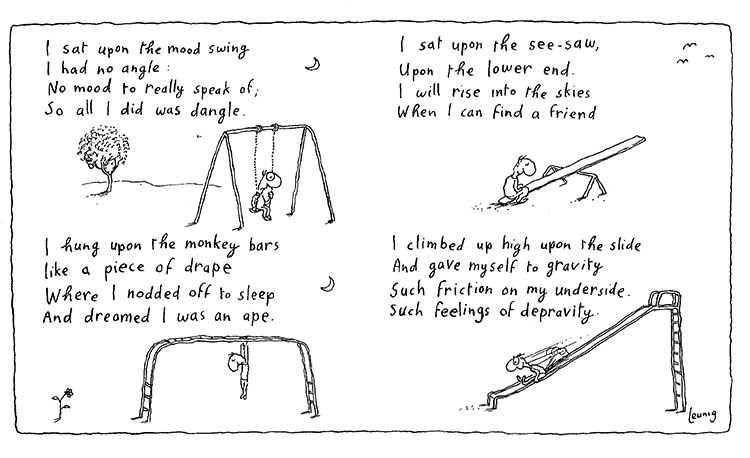 I sat upon the mood swing
I had no angle:
No mood to really speak of;
So all I did was dangle.
I sat upon the see-saw,
Upon the lower end.
I will rise into the skies
When I can find a friend
I hung upon the monkey bars
like a piece of drape
Where I nodded off to sleep
And dreamed I was an ape.
I climbed up high upon the slide
And gave myself to gravity
Such friction on my underside.
Such feelings of depravity.
Leunig